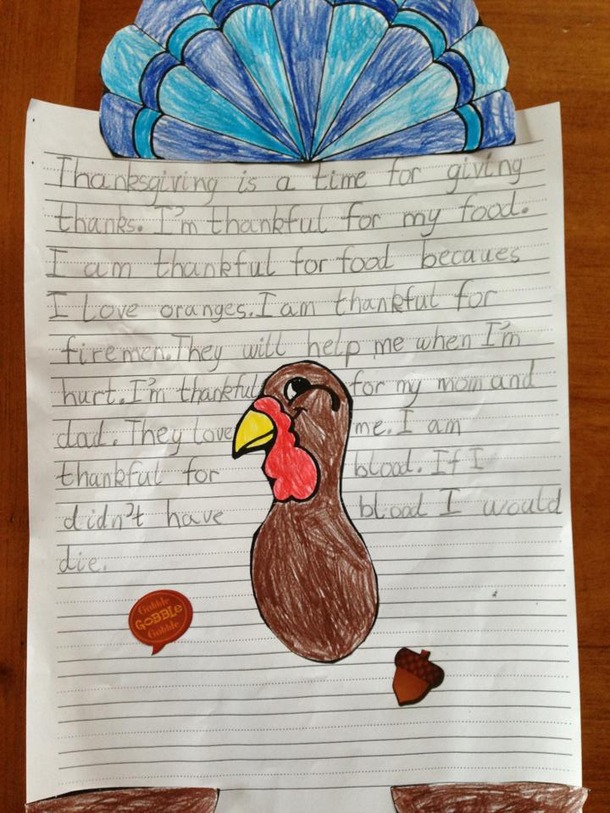 Thanksgiving is a time for giving
thanks. I'm thankful for my food.
I am thankful for food becaues
I Love oranges. I am thankful for
firemen. They will help me when I'm
hurt. I'm thankful for my mom and
dad. They Love me. I am
thankful for blood. If I
didn't have blood I would
die.
Gobble
GOBBLE
Gobble